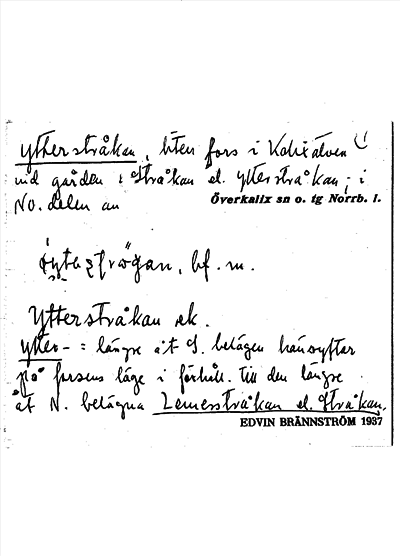 Ytterstråkan, liten fors i Kalixälven
vid gården i Stråkan el. Ytterstråkan, i
NO. delen av
Överkalix sn o. tg Norrb. l.
bf. m.
Ytterstråkan ek.
Ytter- = längre åt S. belägen hänsyftar
på forsens läge i förhåll. till den längre
åt N. belägna Zemerstråkan el. Stråkan.
EDVIN BRÄNNSTRÖM 1937